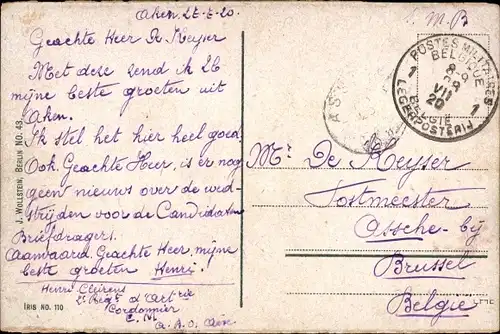 Aken. 27-7-20.
Geachte Heer De Keyser
Met deze zend ik U
mijne beste groeten uit
Aken.
Ik stel het hier heel goed.
Ook Geachte Heer, is er nog
geen nieuws over de wed-
strijden voor de Candidaten
Briefdragers.
Aanvaard. Geachte Heer, mijne
beste groeten Henri.
Henri
2e Regt d'Artrie
Cordonnier
E.M
A.B.O Aken
J. WOLLSTEIN, BERLIN NO. 43.
IRIS NO. 110
S. M. B
POSTES MILITAIRES
BELGIQUE
1 8-9 1
VII
20
BELGIE
LEGERPOSTERIJ
Mr De Keyser
Postmeester
Assche-bij
Brussel
België